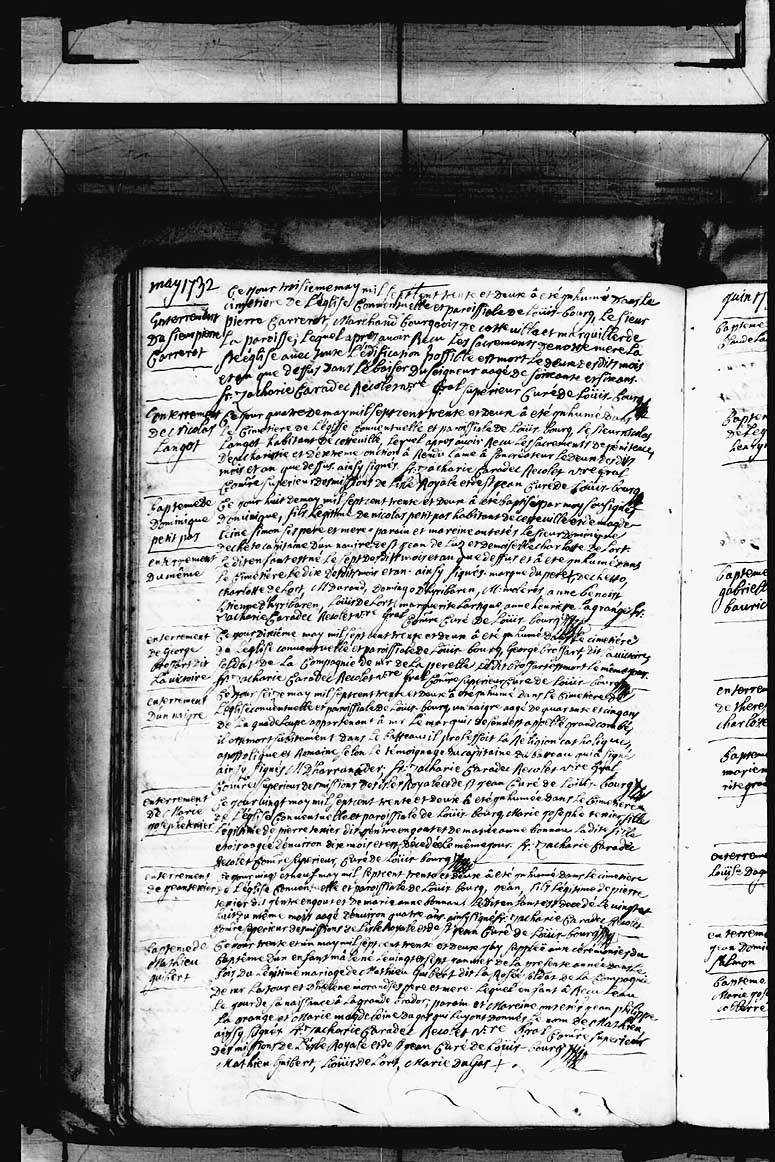 may 1732
Enterrement
Du Sieur pierre
Carrerot
Ce jour troisieme may mil sept cent trente et deux à eté ynhumé dans le
cimetiere de L'eglise Conventuelle et paroissiale de Loüis-bourg, Le sieur
pierre Carrerot, Marchand bourgeois de cette ville et marguiller de
La paroisse, Lequel apres avoir Reçu Les sacrements de notre mere La
Ste église avec toute L'edification possible est mort Le deux desdits mois
et an que dessus dans Le baiser du seigneur aagé de soixante et six ans.
fr. Zacharie Caradec Recolet vre gral superieur Curé de Loüis-bourg
Enterrement
de Nicolas
Langot
Ce jour quatre de may mil sept cent trente et deux à eté ynhumé dans
Le Cimetiere de L'eglise Conventuelle et paroissiale de Loüis bourg Le sieur Nicolas
Langot habitant de cette ville, Lequel apres avoir Reçu Les sacrements de penitence
d'eucharistie et d'extreme onction à Rendu L'ame à son createur Le deux desdits
mois et an que dessus. ainsy signés fr. Zacharie Caradec Recolet vre gral
Comre superieur des missions de L'isle Royale et de st jean Curé de Loüis-bourg
bapteme de
Dominique
petit pas
Ce jour huit de may mil sept cent trente et deux à eté baptisé par moy soussigné
Dominique, fils Legitime de nicolas petit pas habitant de cette ville et de magde
leine simon ses pere et mere. parain et mareine ont etés Le sieur dominique
decheto capitaine d'un navire de st jean de Luz et demoiselle charlotte de Lort.
enterrement
du même
Ledit enfant est né Le sept desdits mois et an que dessus et à eté ynhumé dans
Le Cimetiere Le dix desdits mois et an. ainsy signés. marque du pere + dechetto,
charlotte de Lort, M Durand, Domingo D'hyribaren, anne benoist
Etienne d'hyribaren, Loüis de Lort, marguerite Lartigue, anne henriette Lagrange, fr.
Zacharie Caradec Recolet vre gral Comre Curé de Loüis-bourg
enterrement
de George
Brossart dit
La victoire
Ce jour dixieme may mil sept cent trente et deux à eté ynhumé dans Le cimetiere
de L'eglise conventuelle et paroissiale de Loüis-bourg, George Brossart, dit La victoire,
soldat de La Compagnie de mr de La perelle. Ledit Brossart est mort Le même jour.
fr. Zacharie Caradec Recolet vre gral Comre superieur Curé de Loüis-bourg
enterrement
d'un naigre
Ce jour seize may mil sept cent trente et deux à eté ynhumé dans Le cimetiere de
L'eglise conventuelle et paroissiale de Loüis-bourg, un naigre aagé de quarante et cinq ans
de La guadeloupe appartenant à mr Le marquis de appellé grand combé,
il est mort subitement dans Le batteau, il professoit La Religion catholique,
apostolique et Romaine selon Le temoignage du capitaine du bateau qui à signé
ainsy signés M D'harrande, fr. Zacharie Caradec Recolet vre gral
Comre superieur des missions des isles Royale et de st jean Curé de Loüis-bourg
enterrement
de Marie
josephe terier
Ce jour vingt may mil sept cent trente et deux à eté ynhumé dans Le Cimetiere
de L'eglise Conventuelle et paroissiale de Loüis-bourg, Marie josephe terier, fille
Legitime de pierre terier dit gentreengout et de marie anne bonnau. Ladite fille
etoit aagée d'environ dix mois et est décedée Le même jour. fr. Zacharie Caradec
Recolet Comre superieur, Curé de Loüis bourg
enterrement
de jean terier
Ce jour vingt et neuf may mil sept cent trente et deux à eté ynhumé dans le cimetiere
de L'eglise Conventuelle et paroissiale de Loüis-bourg, jean, fils Legitime de pierre
terier dit gentreengout et de marie anne bonnaud. Ledit enfant est decedé Le vingt et
huit du même mois aagé d'environ quatre ans. ainsy signés fr. Zacharie Caradec Recolet
Comre superieur des missions de L'isle Royale et de st jean Curé de Loüis-bourg
baptême de
Mathieu
guibert
Ce jour trente et un may mil sept cent trente et deux j'ay suppléé aux cérémonies du
baptême d'un enfant mâle né Le vingt et sept janvier de la presente année dans Le
fois du Légitime mariage de Mathieu Guibert dit La Rosée soldat de La Compagnie
de mr La tour et d'helene morand ses pere et mere. Lequel enfant à Reçu L'eau
le jour de sa naissance à La grande orador; parain et Mareine ont etés jean philippe
La grange et Marie magdeleine dugas qui Luy ont donnés Le nom de Mathieu
ainsy signés fr. Zacharie Caradec Recolet vre gral Comre superieur
des missions de L'isle Royale et de st jean Curé de Loüis-bourg
Mathieu Guibert, Loüis de Lort, Marie Dugas +
juin 17
bapteme
baptem
bapteme
gabriell
enterrem
de theres
charlotte
baptem
enterrem
Loüise
enterrem
jean Domi
bapteme
Marie jose